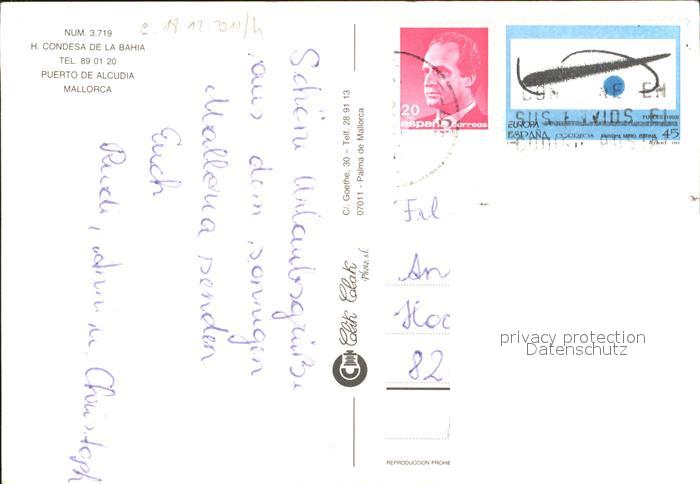 NUM. 3.719
H. CONDESA DE LA BAHIA
TEL. 89 01 20
PUERTO DE ALCUDIA
MALLORCA
Schöne Urlaubsgrüße
aus dem sonnigen
Mallorca senden
Euch
Rudi, Anni u. Christoph
C/. Goethe, 30 – Telf. 28 91 13
07011 - Palma de Mallorca
Clik Clak
Photo, s.l.
20
españa correos
EUROPA
ESPAÑA CORREOS 45
SUS ENVIOS EL
Frl.
An
Hoc
82
REPRODUCCION PROHIB
privacy protection
Datenschutz